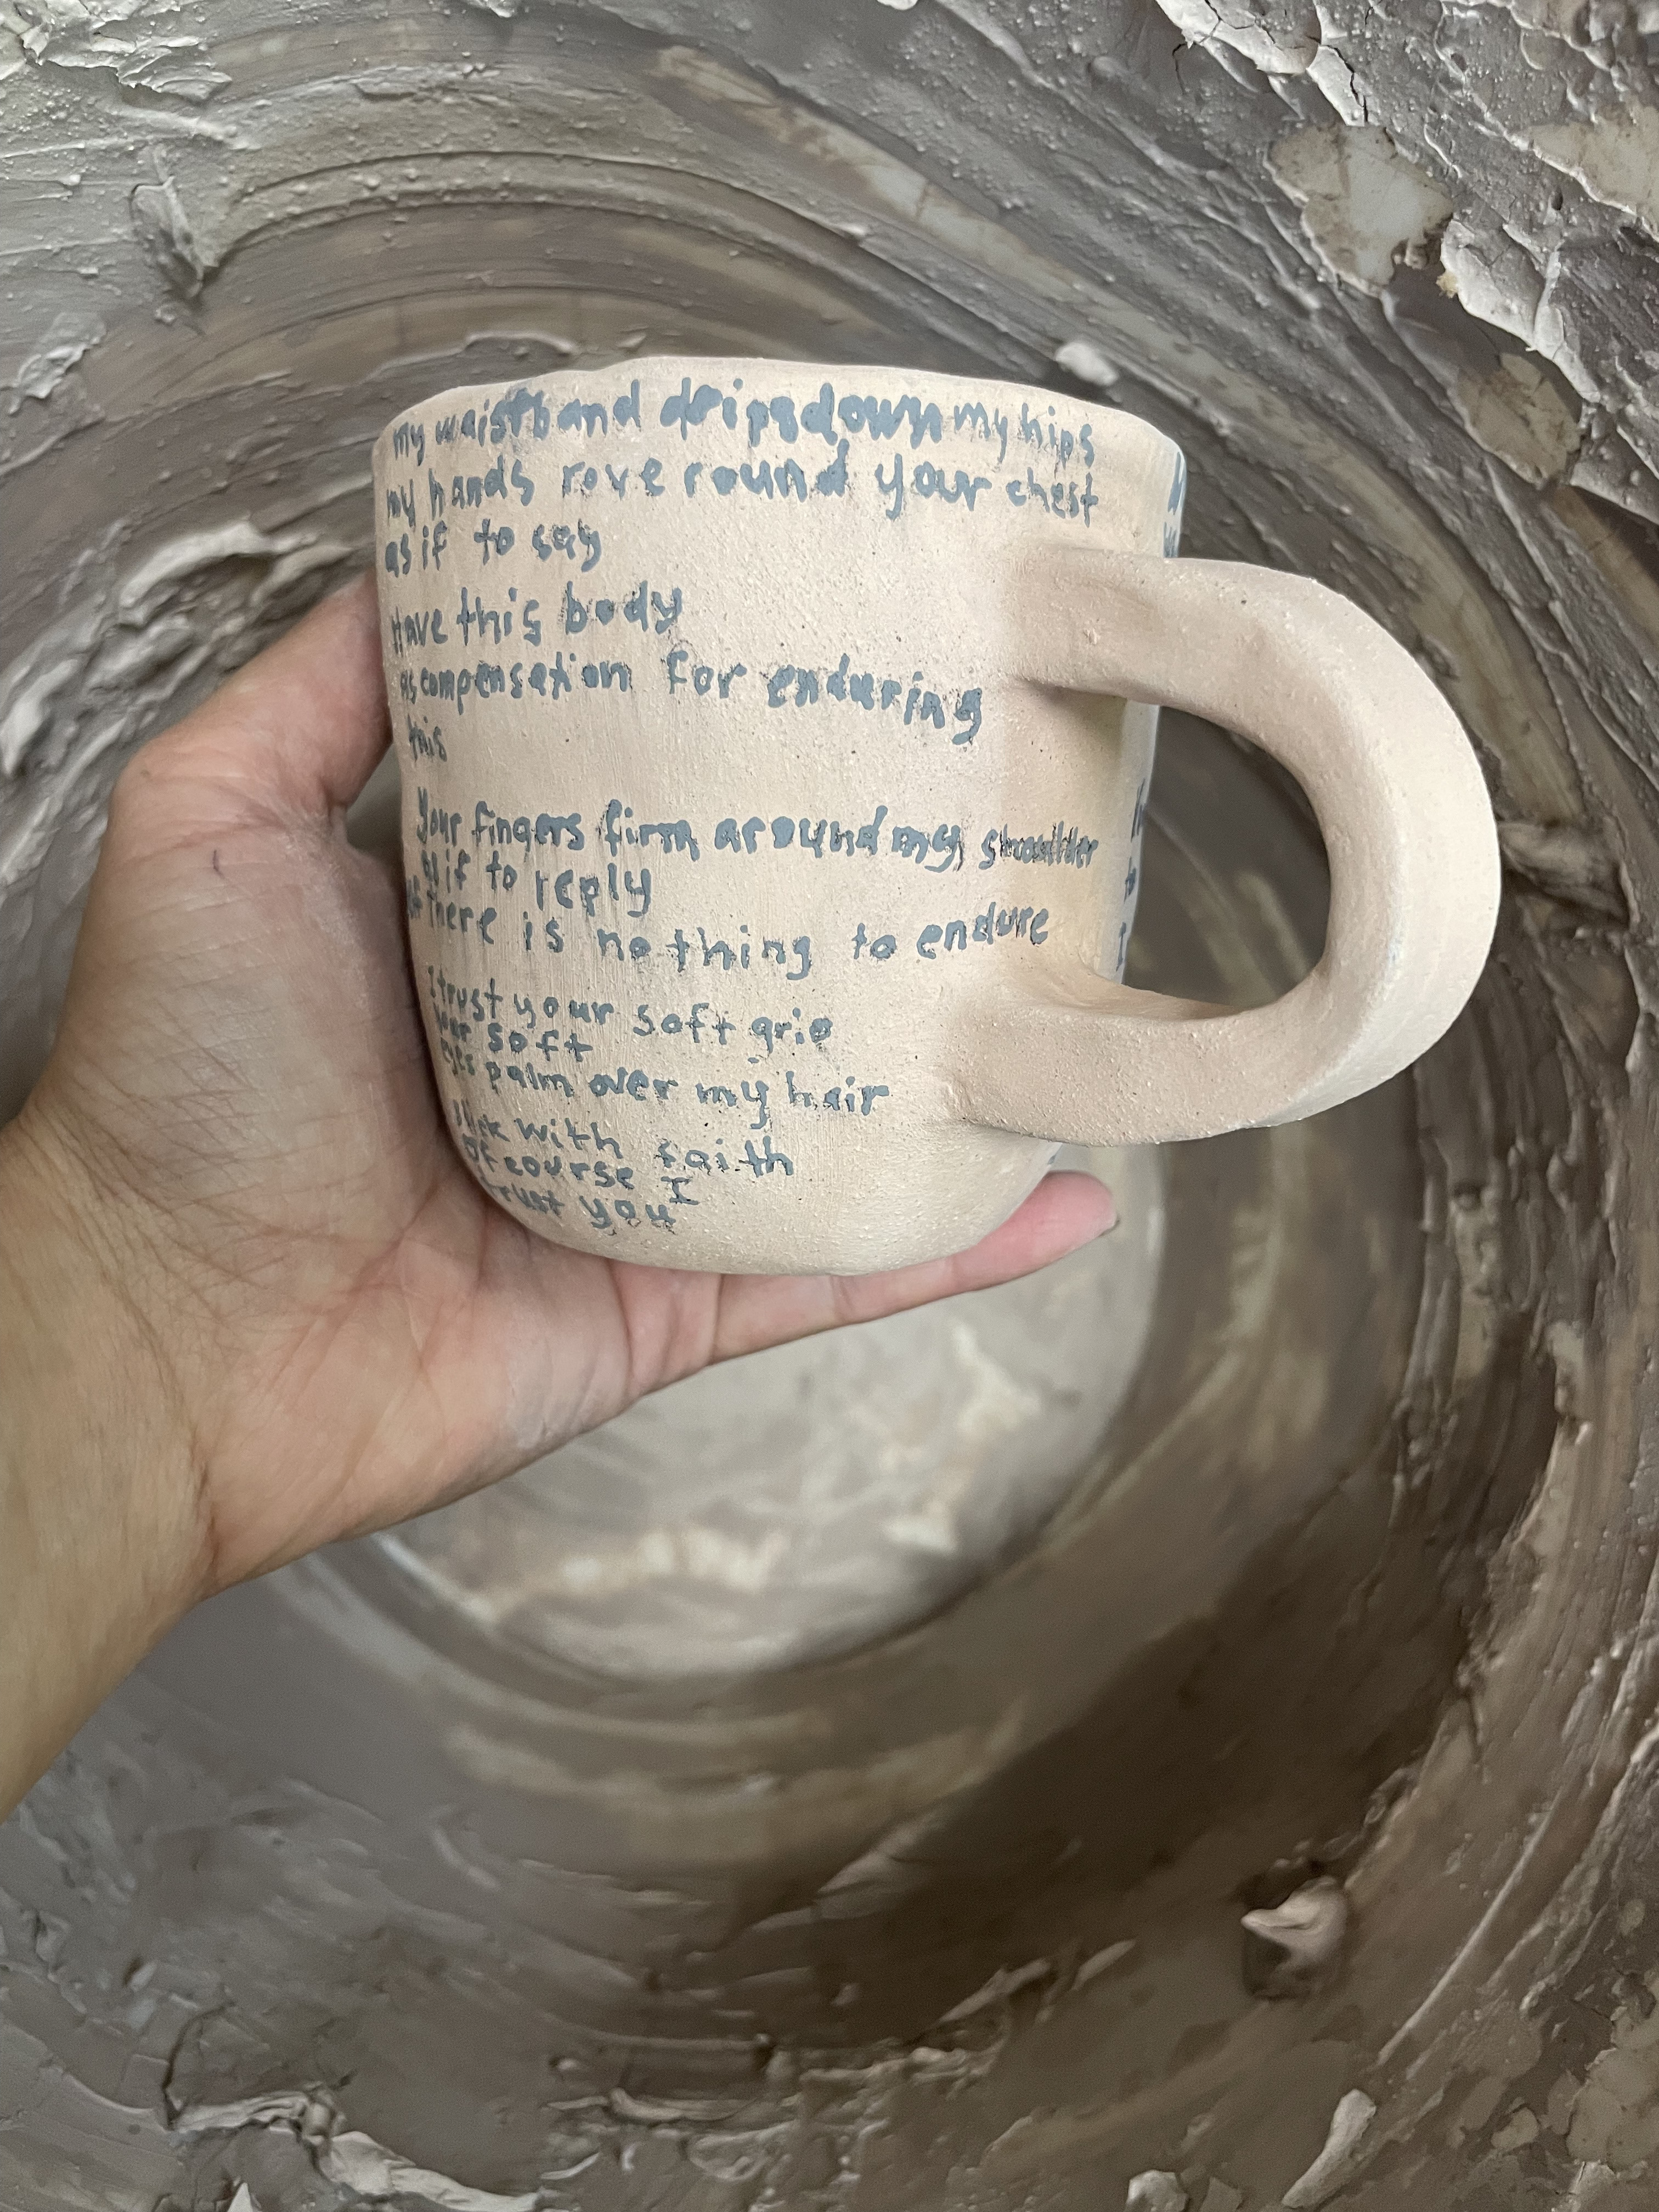 my waistband drips down my hips
my hands rove round your chest
as if to say
Have this body
as compensation for enduring
this
Your fingers firm around my shoulder
as if to reply
there is nothing to endure
I trust your soft grip
your soft
palm over my hair
with faith
Of course I
trust you